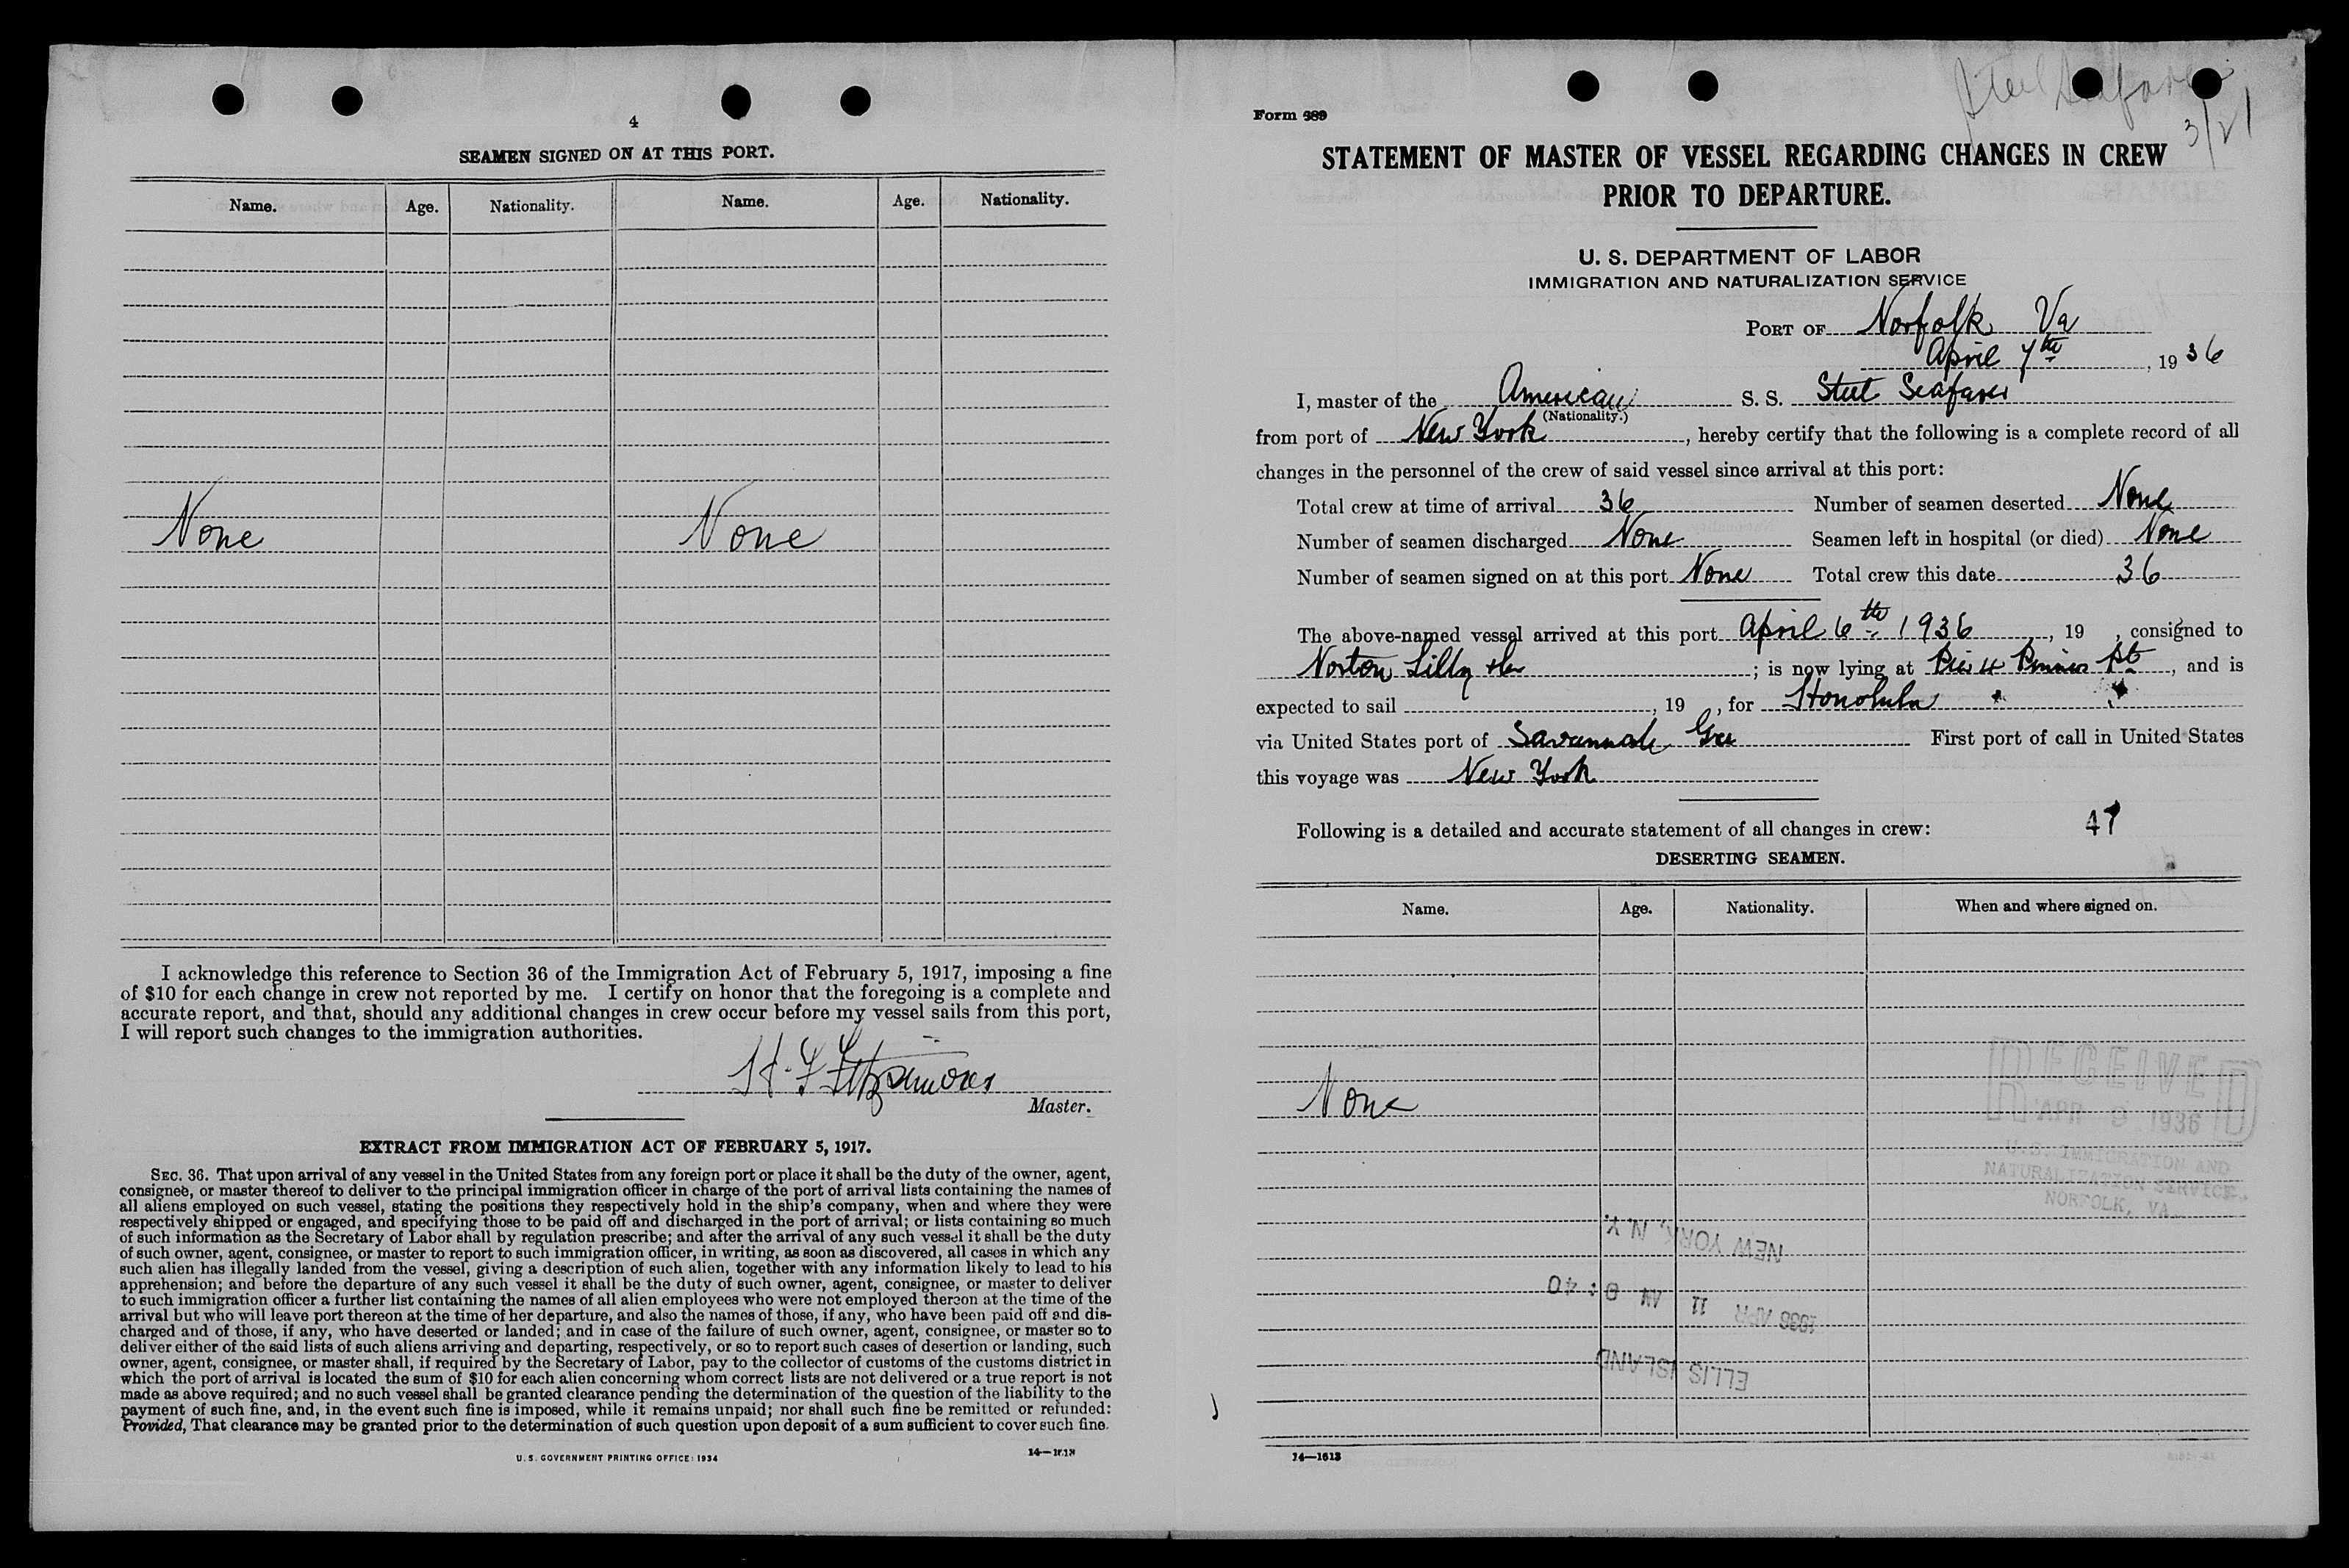 4
SEAMEN SIGNED ON AT THIS PORT.
Name. Age. Nationality. Name. Age. Nationality.
None None
I acknowledge this reference to Section 36 of the Immigration Act of February 5, 1917, imposing a fine
of $10 for each change in crew not reported by me. I certify on honor that the foregoing is a complete and
accurate report, and that, should any additional changes in crew occur before my vessel sails from this port,
I will report such changes to the immigration authorities.
H. F. Fitzsimons
Master.
EXTRACT FROM IMMIGRATION ACT OF FEBRUARY 5, 1917.
SEC. 36. That upon arrival of any vessel in the United States from any foreign port or place it shall be the duty of the owner, agent,
consignee, or master thereof to deliver to the principal immigration officer in charge of the port of arrival lists containing the names of
all aliens employed on such vessel, stating the positions they respectively hold in the ship's company, when and where they were
respectively shipped or engaged, and specifying those to be paid off and discharged in the port of arrival; or lists containing so much
of such information as the Secretary of Labor shall by regulation prescribe; and after the arrival of any such vessel it shall be the duty
of such owner, agent, consignee, or master to report to such immigration officer, in writing, as soon as discovered, all cases in which any
such alien has illegally landed from the vessel, giving a description of such alien, together with any information likely to lead to his
apprehension; and before the departure of any such vessel it shall be the duty of such owner, agent, consignee, or master to deliver
to such immigration officer a further list containing the names of all alien employees who were not employed thereon at the time of the
arrival but who will leave port thereon at the time of her departure, and also the names of those, if any, who have been paid off and dis-
charged and of those, if any, who have deserted or landed; and in case of the failure of such owner, agent, consignee, or master so to
deliver either of the said lists of such aliens arriving and departing, respectively, or so to report such cases of desertion or landing, such
owner, agent, consignee, or master shall, if required by the Secretary of Labor, pay to the collector of customs of the customs district in
which the port of arrival is located the sum of $10 for each alien concerning whom correct lists are not delivered or a true report is not
made as above required; and no such vessel shall be granted clearance pending the determination of the question of the liability to the
payment of such fine, and, in the event such fine is imposed, while it remains unpaid; nor shall such fine be remitted or refunded:
Provided, That clearance may be granted prior to the determination of such question upon deposit of a sum sufficient to cover such fine.
U. S. GOVERNMENT PRINTING OFFICE: 1934
Steel Seafarer
3/21
Form 689
STATEMENT OF MASTER OF VESSEL REGARDING CHANGES IN CREW
PRIOR TO DEPARTURE.
U. S. DEPARTMENT OF LABOR
IMMIGRATION AND NATURALIZATION SERVICE
PORT OF Norfolk Va
April 7th, 1936
I, master of the American S. S. Steel Seafarer
(Nationality.)
from port of New York, hereby certify that the following is a complete record of all
changes in the personnel of the crew of said vessel since arrival at this port:
Total crew at time of arrival 36 Number of seamen deserted None
Number of seamen discharged None Seamen left in hospital (or died) None
Number of seamen signed on at this port None Total crew this date 36
The above-named vessel arrived at this port April 6th 1936, 19 , consigned to
Norton Lilly &Co; is now lying at Pier 4 Pinners Pt, and is
expected to sail , 19 , for Honolulu
via United States port of Savannah Geo First port of call in United States
this voyage was New York
Following is a detailed and accurate statement of all changes in crew: 47
DESERTING SEAMEN.
Name. Age. Nationality. When and where signed on.
None
RECEIVED
APR 9 1936
U.S. IMMIGRATION AND
NATURALIZATION SERVICE,
NORFOLK, VA.
NEW YORK, N.Y.
1936 APR 11 AM
ELLIS ISLAND
14—1613